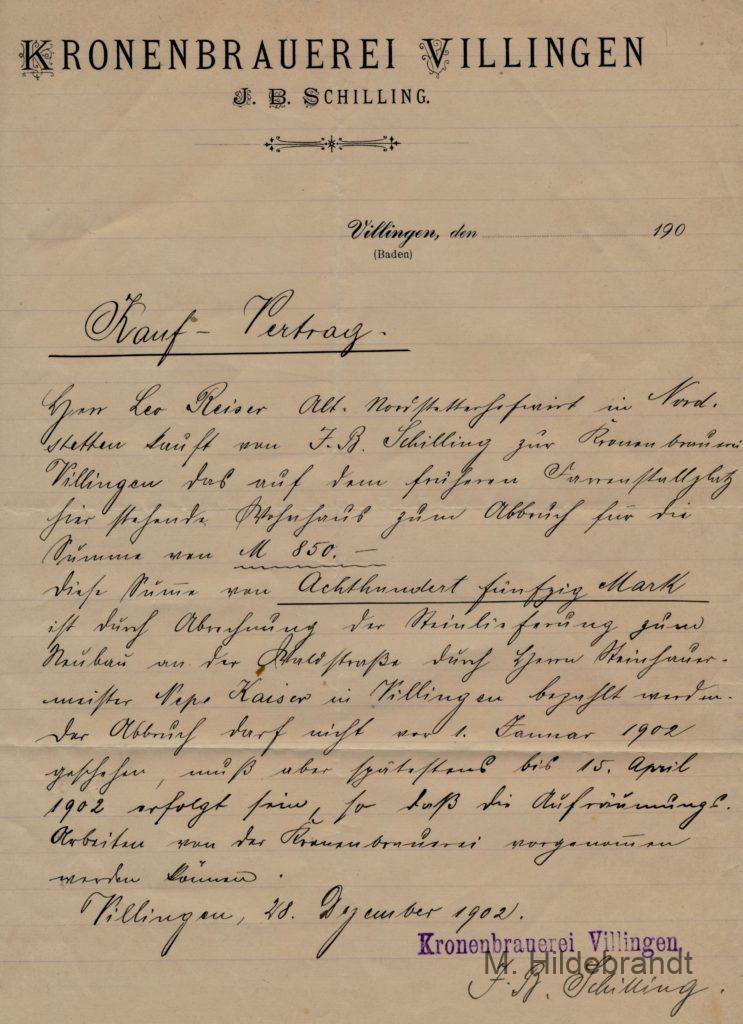 KRONENBRAUEREI VILLINGEN
J. B. SCHILLING.
Villingen, den 190
(Baden)
Kauf-Vertrag.
Herr Leo Reiser Alt-Nordstetterhofwirt in Nord-
stetten kauft von J. B. Schilling zur Kronenbrauerei
Villingen das auf dem früheren Farrenstallplatz
hier stehende Wohnhaus zum Abbruch für die
Summe von M 850.—
Diese Sum̄e von Achthundert fünfzig Mark
ist durch Abrechnung der Steinlieferung zum
Neubau an der Waldstraße durch Herrn Steinhauer-
meister Nepo Kaiser in Villingen bezahlt worden.
Der Abbruch darf nicht vor 1. Januar 1902
geschehen, muß aber spätestens bis 15. April
1902 erfolgt sein, so daß die Aufräumungs-
Arbeiten von der Kronenbrauerei vorgenom̄en
werden können.
Villingen, 28. Dezember 1902.
Kronenbrauerei Villingen,
M. Hildebrandt
J. B. Schilling.